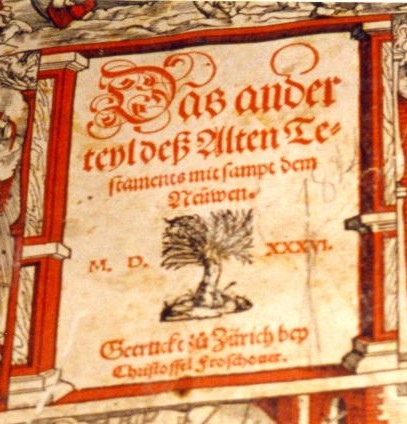 Das ander
teyl deß Alten Te-
staments mit sampt dem
Neüwen.
M. D. XXXVI.
Getruckt zů Zürich bey
Christoffel Froschouer.